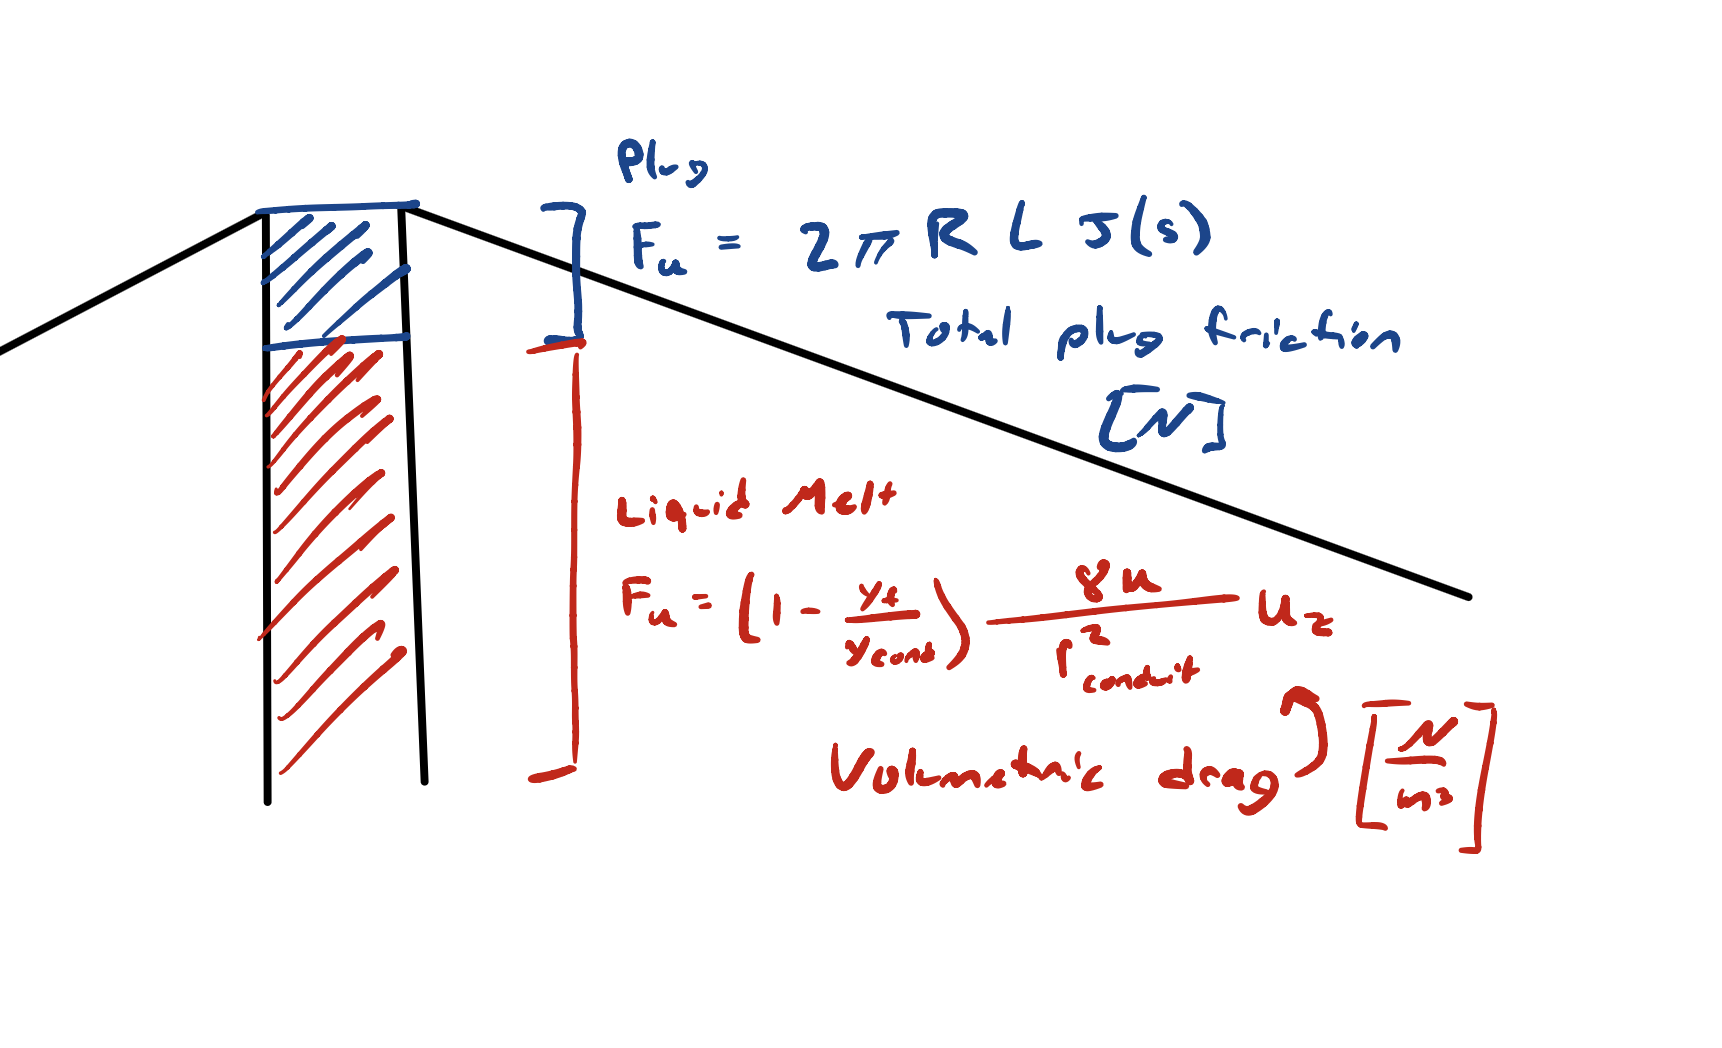 Plug
Fu = 2π R L J(s)
Total plug friction
[N]
Liquid Melt
Fu = (1 - yf/ycond) 8u/r²conduit uz
Volumetric drag [N/m³]